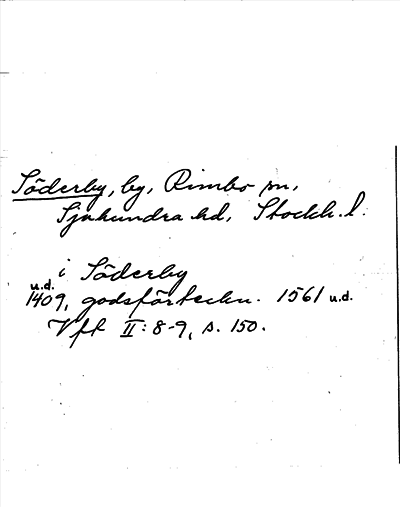 Söderby, by, Rimbo sn,
Sjuhundra hd, Stockh. l.
i Söderby
u.d.
1409, godsförteckn. 1561 u.d.
Vfl II: 8-9, s. 150.